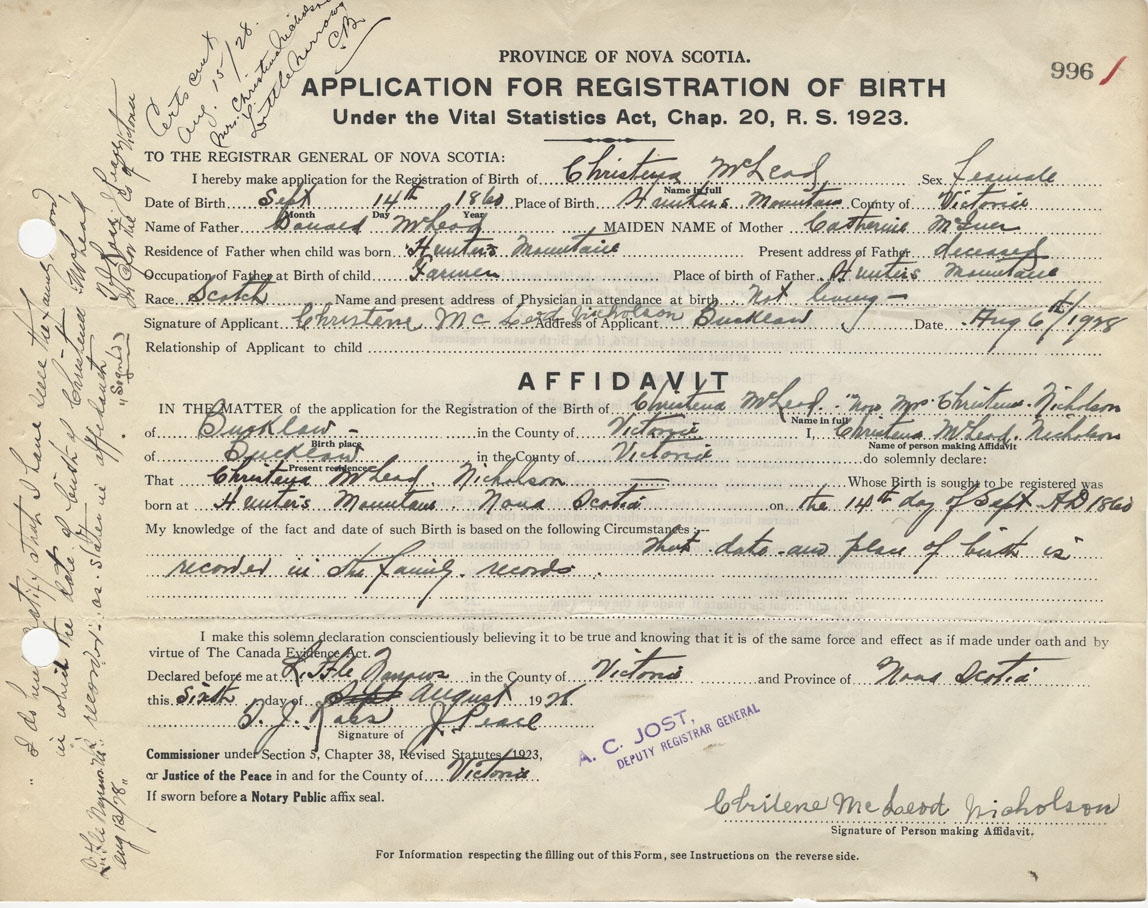 Certs sent
Aug. 15/28.
Mrs. Christina Nicholson
Little Narrows
C.B.
996 /
PROVINCE OF NOVA SCOTIA.
APPLICATION FOR REGISTRATION OF BIRTH
Under the Vital Statistics Act, Chap. 20, R. S. 1923.
TO THE REGISTRAR GENERAL OF NOVA SCOTIA:
I hereby make application for the Registration of Birth of Christena McLeod Sex female
Name in full
Date of Birth Sept 14th 1860 Place of Birth Hunters Mountain County of Victoria
Month Day Year
Name of Father Donald McLeod MAIDEN NAME of Mother Catherine McIver
Residence of Father when child was born Hunters Mountain Present address of Father deceased
Occupation of Father at Birth of child Farmer Place of birth of Father Hunters Mountain
Race Scotch Name and present address of Physician in attendance at birth Not living —
Signature of Applicant Christene Mc Leod Nicholson Address of Applicant Bucklaw Date Aug 6th/1928
Relationship of Applicant to child
AFFIDAVIT
IN THE MATTER of the application for the Registration of the Birth of Christena McLeod. "Now Mrs Christena Nicholson
Name in full
of Bucklaw in the County of Victoria I, Christena McLeod Nicholson
Birth place Name of person making Affidavit
of Bucklaw in the County of Victoria do solemnly declare:
Present residence
That Christena McLeod Nicholson Whose Birth is sought to be registered was
born at Hunters Mountain Nova Scotia on the 14th day of Sept AD 1860
My knowledge of the fact and date of such Birth is based on the following Circumstances:—
that date and place of birth is
recorded in the family records
I make this solemn declaration conscientiously believing it to be true and knowing that it is of the same force and effect as if made under oath and by
virtue of The Canada Evidence Act.
Declared before me at Little Narrows in the County of Victoria and Province of Nova Scotia
this Sixth day of Sept August 1928
D. J. Ross J. Peace
Signature of
Commissioner under Section 5, Chapter 38, Revised Statutes 1923,
or Justice of the Peace in and for the County of Victoria
If sworn before a Notary Public affix seal.
A. C. JOST,
DEPUTY REGISTRAR GENERAL
Chrilene Mc Leod Nicholson
Signature of Person making Affidavit.
For Information respecting the filling out of this Form, see Instructions on the reverse side.
"I do hereby certify that I have seen the family record
in which the date of birth of Christena McLeod
is recorded as stated in affidavit.
"Signed" D J Ross, J Peace
in & for the Co of Victoria
Little Narrows
Aug 13/28"